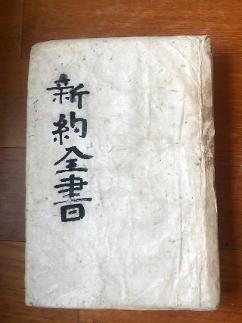 新約全書